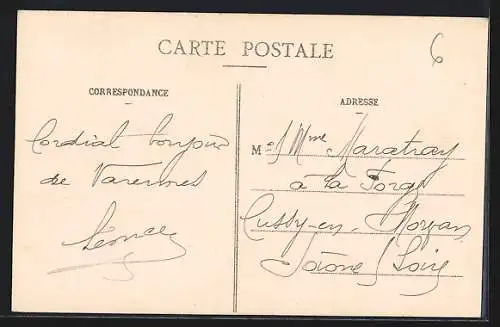 CARTE POSTALE
6
CORRESPONDANCE
Cordial bonjour
de Varennes
Leonce
ADRESSE
M Mme Maratray
à la Forge
Cussy-en-Morvan
Saône / Loire